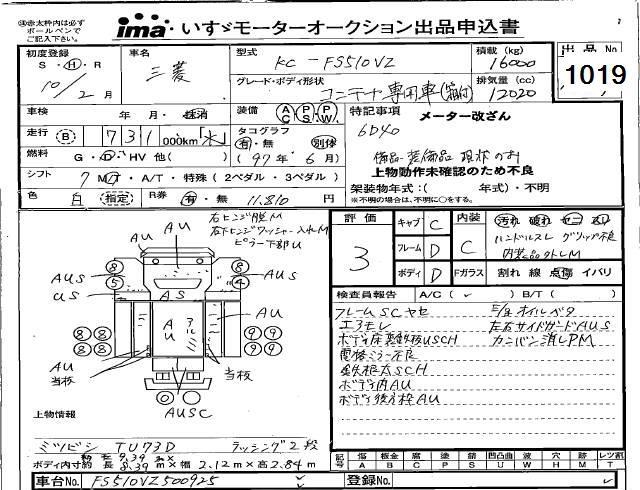 ㊟赤太枠内は必ず
ボールペンで
ご記入下さい。
ima いすゞモーターオークション出品申込書
初度登録 車名 型式 KC-FS510VZ 積載(kg) 出品No
S・H・R 三菱 16000 1019
10/2月 グレード・ボディ形状 コンテナ専用車(箱付) 排気量(cc) 12020
車検 年 月・抹消 装備 AC PS PW 特記事項 メーター改ざん
走行 B 731 000km タコグラフ 有・無 別体 6D40
燃料 G・D・HV 他( ) (97年 6月) 備品・装備品 現状のお
シフト 7 MT・A/T・特殊(2ペダル・3ペダル) 上物動作未確認のため不良
色 白 指定 R券 有・無 11,810円 架装物年式:( 年式)・不明
※不明の場合は、不明に○をする。
右ヒンジ脱M
右下ヒンジワッシャー入れM
ピラー下部U
評価 3
キャブ C 内装 C 汚れ 破れ セニ スレ
フレーム D ハンドルスレ グリップ不良
内装品外しM
ボディ D Fガラス 割れ 線 点傷 イバリ
AU AU
8 8
AUS 5 4 AUS
US AS
AU AU
AU
8 8 9 9
8 8 9 9
AU AU
当板 当板
0 0
AUSC
検査員報告 A/C( ✓ ) B/T( )
フレームSCヤセ E/gオイルベタ
エアモレ 左右サイドガードAUS
ボディ床鉄板USCH カンバン消しPM
電格ミラー不良
鉄根太SCH
ボディ内AU
ボディ後方枠AU
上物情報
ミツビシ TU73D ラッシング2段
高 9.39m
ボディ内寸約 長 8.39m×幅 2.12m×高 2.84m
記号 傷 板金 腐 塗 錆 凹凸曲 波 穴 跡 レツ割
A B C P S U W H M T
車台No. FS510VZ500925 登録No.